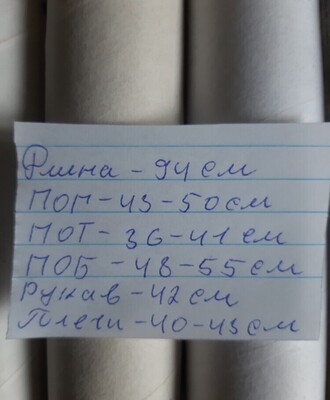 Длина - 94 см
ПОГ - 43 - 50 см
ПОТ - 36 - 41 см
ПОБ - 48 - 55 см
Рукав - 42 см
Плечи - 40 - 43 см